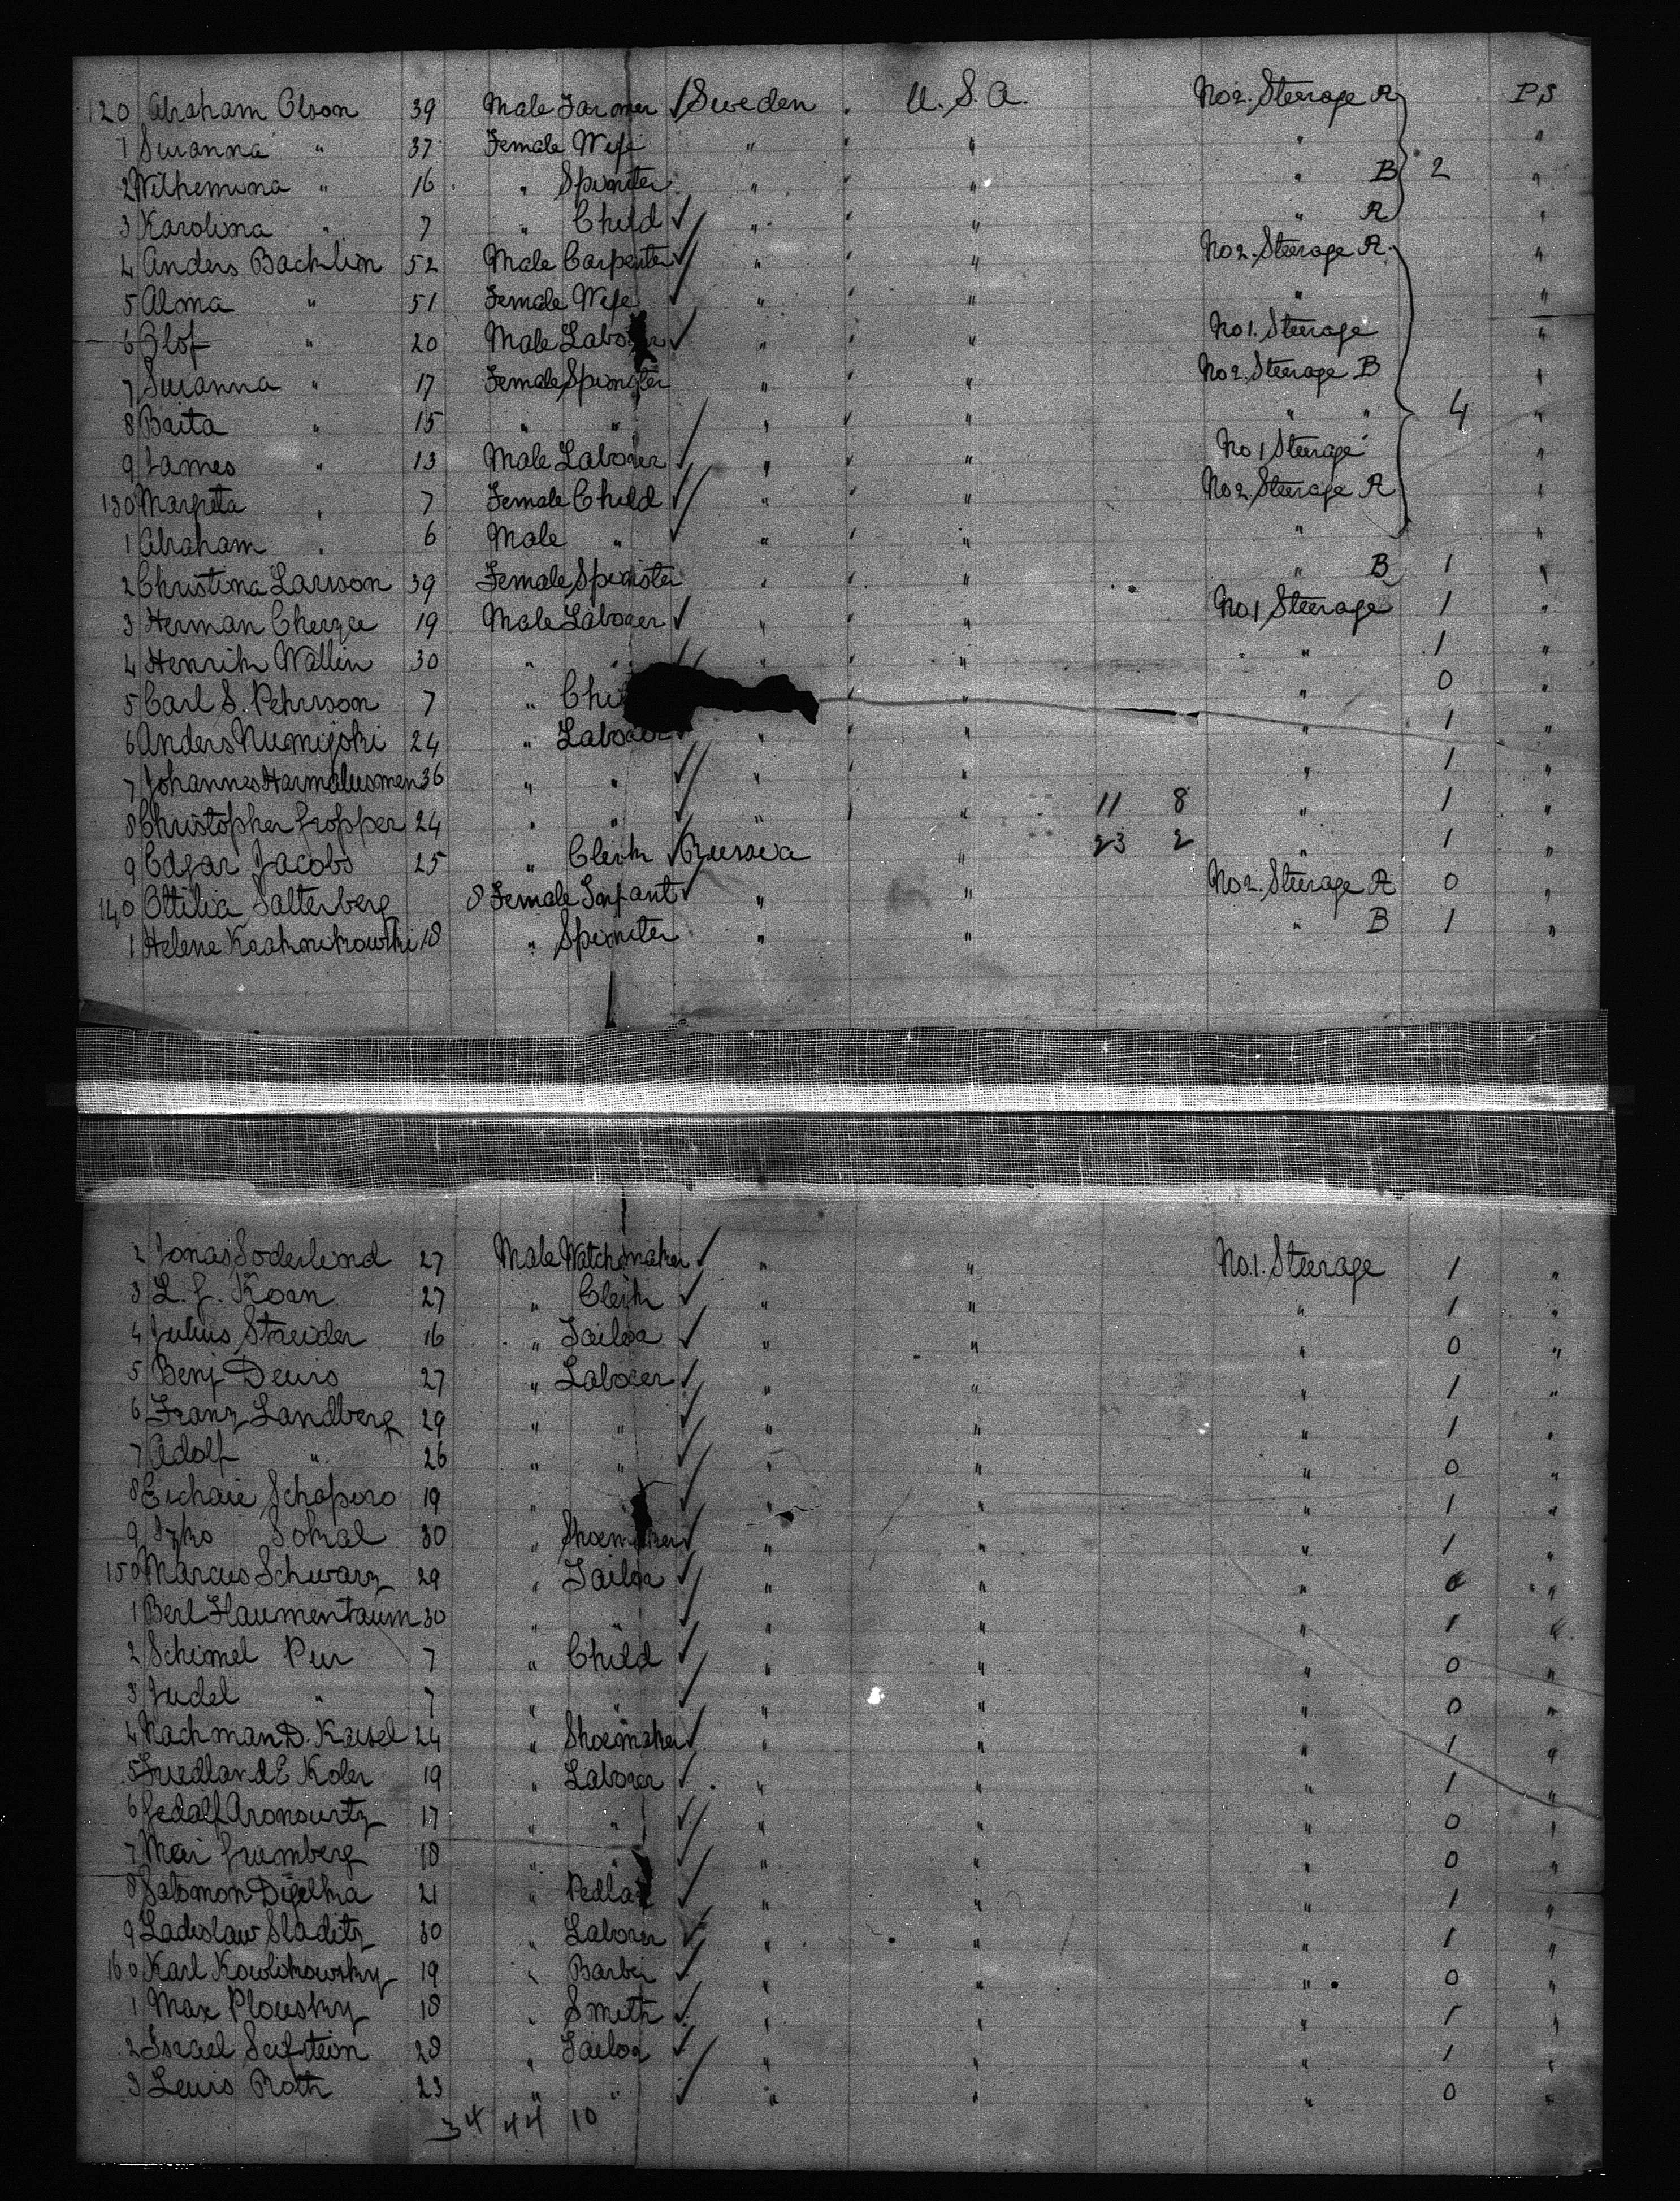 120 Abraham Olson 39 Male Farmer ✓ Sweden U.S.A. No 2. Steerage A PS
1 Susanna " 37 Female Wife " " " "
2 Wilhemina " 16 " Spinster " " " B 2 "
3 Karolina " 7 " Child ✓ " " " A "
4 Anders Backlin 52 Male Carpenter ✓ " " No 2. Steerage A "
5 Alma " 51 Female Wife ✓ " " " "
6 Olof " 20 Male Laborer ✓ " " No 1. Steerage "
7 Susanna " 17 Female Spinster " " No 2. Steerage B "
8 Baita " 15 " " " " " " 4 "
9 James " 13 Male Laborer ✓ " " No 1 Steerage "
130 Margreta " 7 Female Child ✓ " " No 2. Steerage A "
1 Abraham " 6 Male " ✓ " " " "
2 Christina Larsson 39 Female Spinster " " " B 1 "
3 Herman 19 Male Laborer ✓ " " No 1 Steerage 1 "
4 Henrik Wallin 30 " " ✓ " " " 1 "
5 Carl S. Pehrson 7 " Chi " " 0 "
6 Anders Numijoki 24 " Laborer ✓ " " " 1 "
7 Johannes 36 " " ✓ " " " 1 "
8 Christopher Gropper 24 " " ✓ " " 11 8 " 1 "
9 Edgar Jacobs 25 " Clerk ✓ Russia " 23 2 " 1 "
140 Ottilia Salterberg 8 Female Infant ✓ " " No 2. Steerage A 0 "
1 Helene 18 " Spinster " " " B 1 "
2 Jonas Soderlund 27 Male Watchmaker ✓ " " No. 1. Steerage 1 "
3 L. J. Koan 27 " Clerk ✓ " " " 1 "
4 Julius Strauder 16 " Tailor ✓ " " " 0 "
5 Benj Deurs 27 " Laborer ✓ " " " 1 "
6 Franz Landberg 29 " " ✓ " " " 1 "
7 Adolf " 26 " " ✓ " " " 0 "
8 Schapiro 19 " " ✓ " " " 1 "
9 Izko Sokal 30 " Shoemaker ✓ " " " 1 "
150 Marcus Schwarz 29 " Tailor ✓ " " " "
1 Berl Flaumentaum 30 " " ✓ " " " 1 "
2 Schimel Pur 7 " Child ✓ " " " 0 "
3 Judel " 7 " " ✓ " " " 0 "
4 Nachman D. Kaisel 24 " Shoemaker ✓ " " " 1 "
5 Friedland E Koler 19 " Laborer ✓ " " " 1 "
6 Gedalf Aronowitz 17 " " ✓ " " " 0 "
7 Mai Grumberg 18 " " ✓ " " " 0 "
8 Salomon 21 " Pedlar ✓ " " " 1 "
9 Ladislaw Sladitz 30 " Laborer ✓ " " " 1 "
160 Karl Kowlikowsky 19 " Barber ✓ " " " 0 "
1 Max Plousky 18 " Smith ✓ " " " 1 "
2 Israel Seifstein 28 " Tailor ✓ " " " 1 "
3 Lewis Roth 23 " " ✓ " " " 0 "
34 44 10